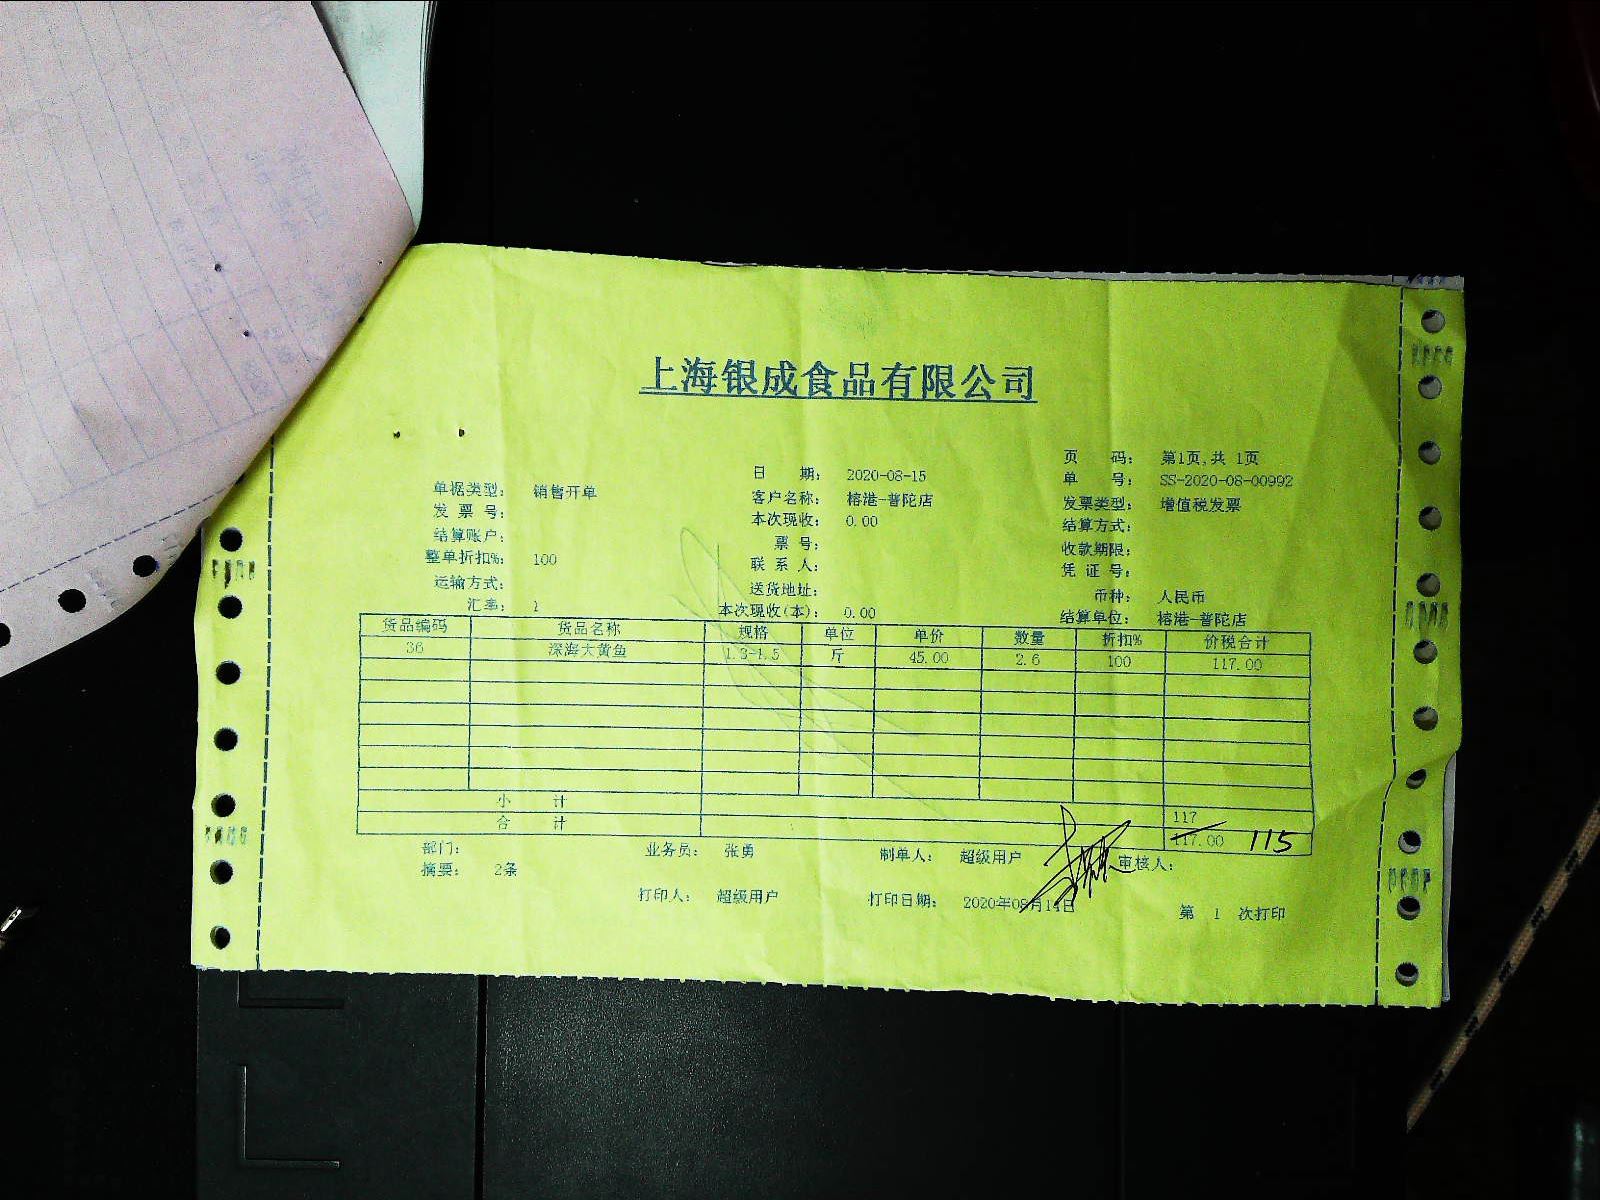 上海银成食品有限公司
页 码: 第1页,共 1页
日 期: 2020-08-15
单 号: SS-2020-08-00992
单据类型: 销售开单
客户名称: 榕港-普陀店
发票类型: 增值税发票
发 票 号:
本次现收: 0.00
结算方式:
结算账户:
票 号:
收款期限:
整单折扣%: 100
联 系 人:
凭 证 号:
运输方式:
送货地址:
币种: 人民币
汇率: 1
本次现收(本): 0.00
结算单位: 榕港-普陀店
货品编码 货品名称 规格 单位 单价 数量 折扣% 价税合计
36 深海大黄鱼 1.3-1.5 斤 45.00 2.6 100 117.00
小 计 117
合 计 117.00 115
部门: 业务员: 张勇 制单人: 超级用户 审核人:
摘要: 2条
打印人: 超级用户 打印日期: 2020年08月14日 第 1 次打印